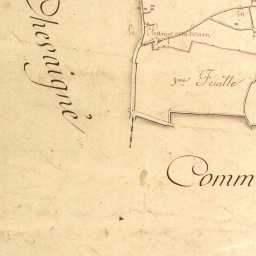 Chevaigné
3me Feuille
Comm